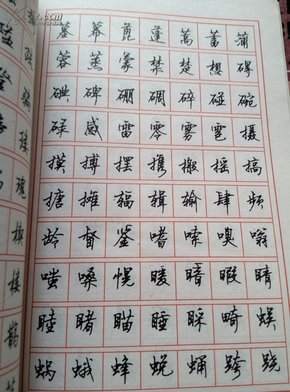 墓 幕 蓖 蓬 蒿 蓄 蒲
蓉 蒸 蒙 禁 楚 想 碍
碘 碑 硼 碉 碎 碰 碗
碌 感 雷 零 雾 雹 摄
摸 搏 摆 携 搬 摇 搞
搪 摊 辐 辑 输 肆 频
龄 督 鉴 嗜 嗦 嗅 嗡
嗤 嗓 幌 暖 暗 暇 睛
睦 睹 瞄 睡 睬 畸 蜈
蜗 蛾 蜂 蜕 蛹 跨 跷